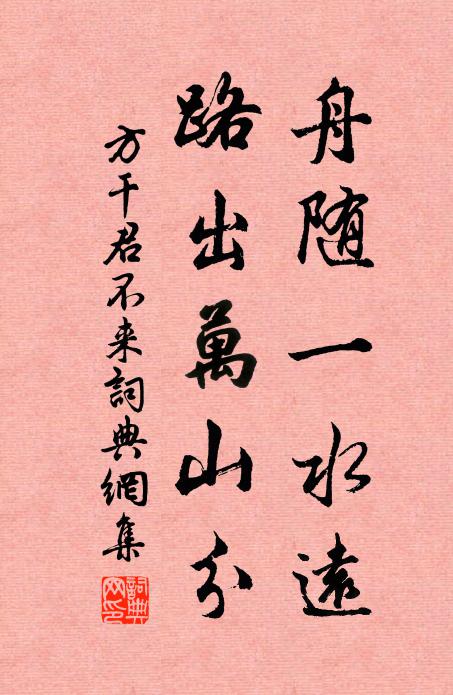 舟随一水遠
路出萬山分
方干君不来詞典網集
詞典网印